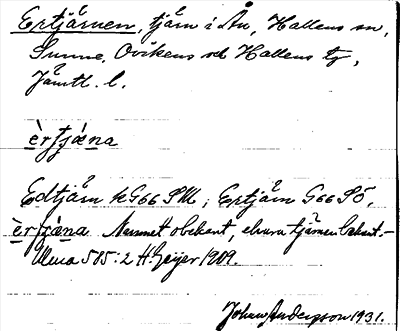 Ertjärnen, tjärn i Ån, Hallens sn,
Sunne, Ovikens och Hallens tg,
Jämtl. l.
èrtjæ̀na
Edtjärn kG66 SV; Ertjärn G66 SÖ,
èrtjæ̀na Namnet obekant, elva tjärnen bekant.-
Ulma 585:2 H. Geijer 1909.
Johan Andersson 1931.